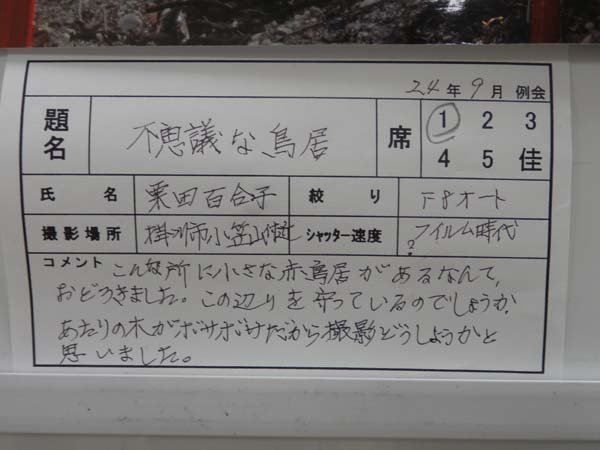 24年 9月 例会
題名 不思議な鳥居 席 1 2 3
4 5 佳
氏名 栗田百合子 絞り F8オート
撮影場所 掛川市小笠山 シャッター速度 ?フイルム時代
コメント こんな所に小さな赤鳥居があるなんて、
おどろきました。この辺りを守っているのでしょうか、
あたりの木がボサボサだから撮影どうしようかと
思いました。